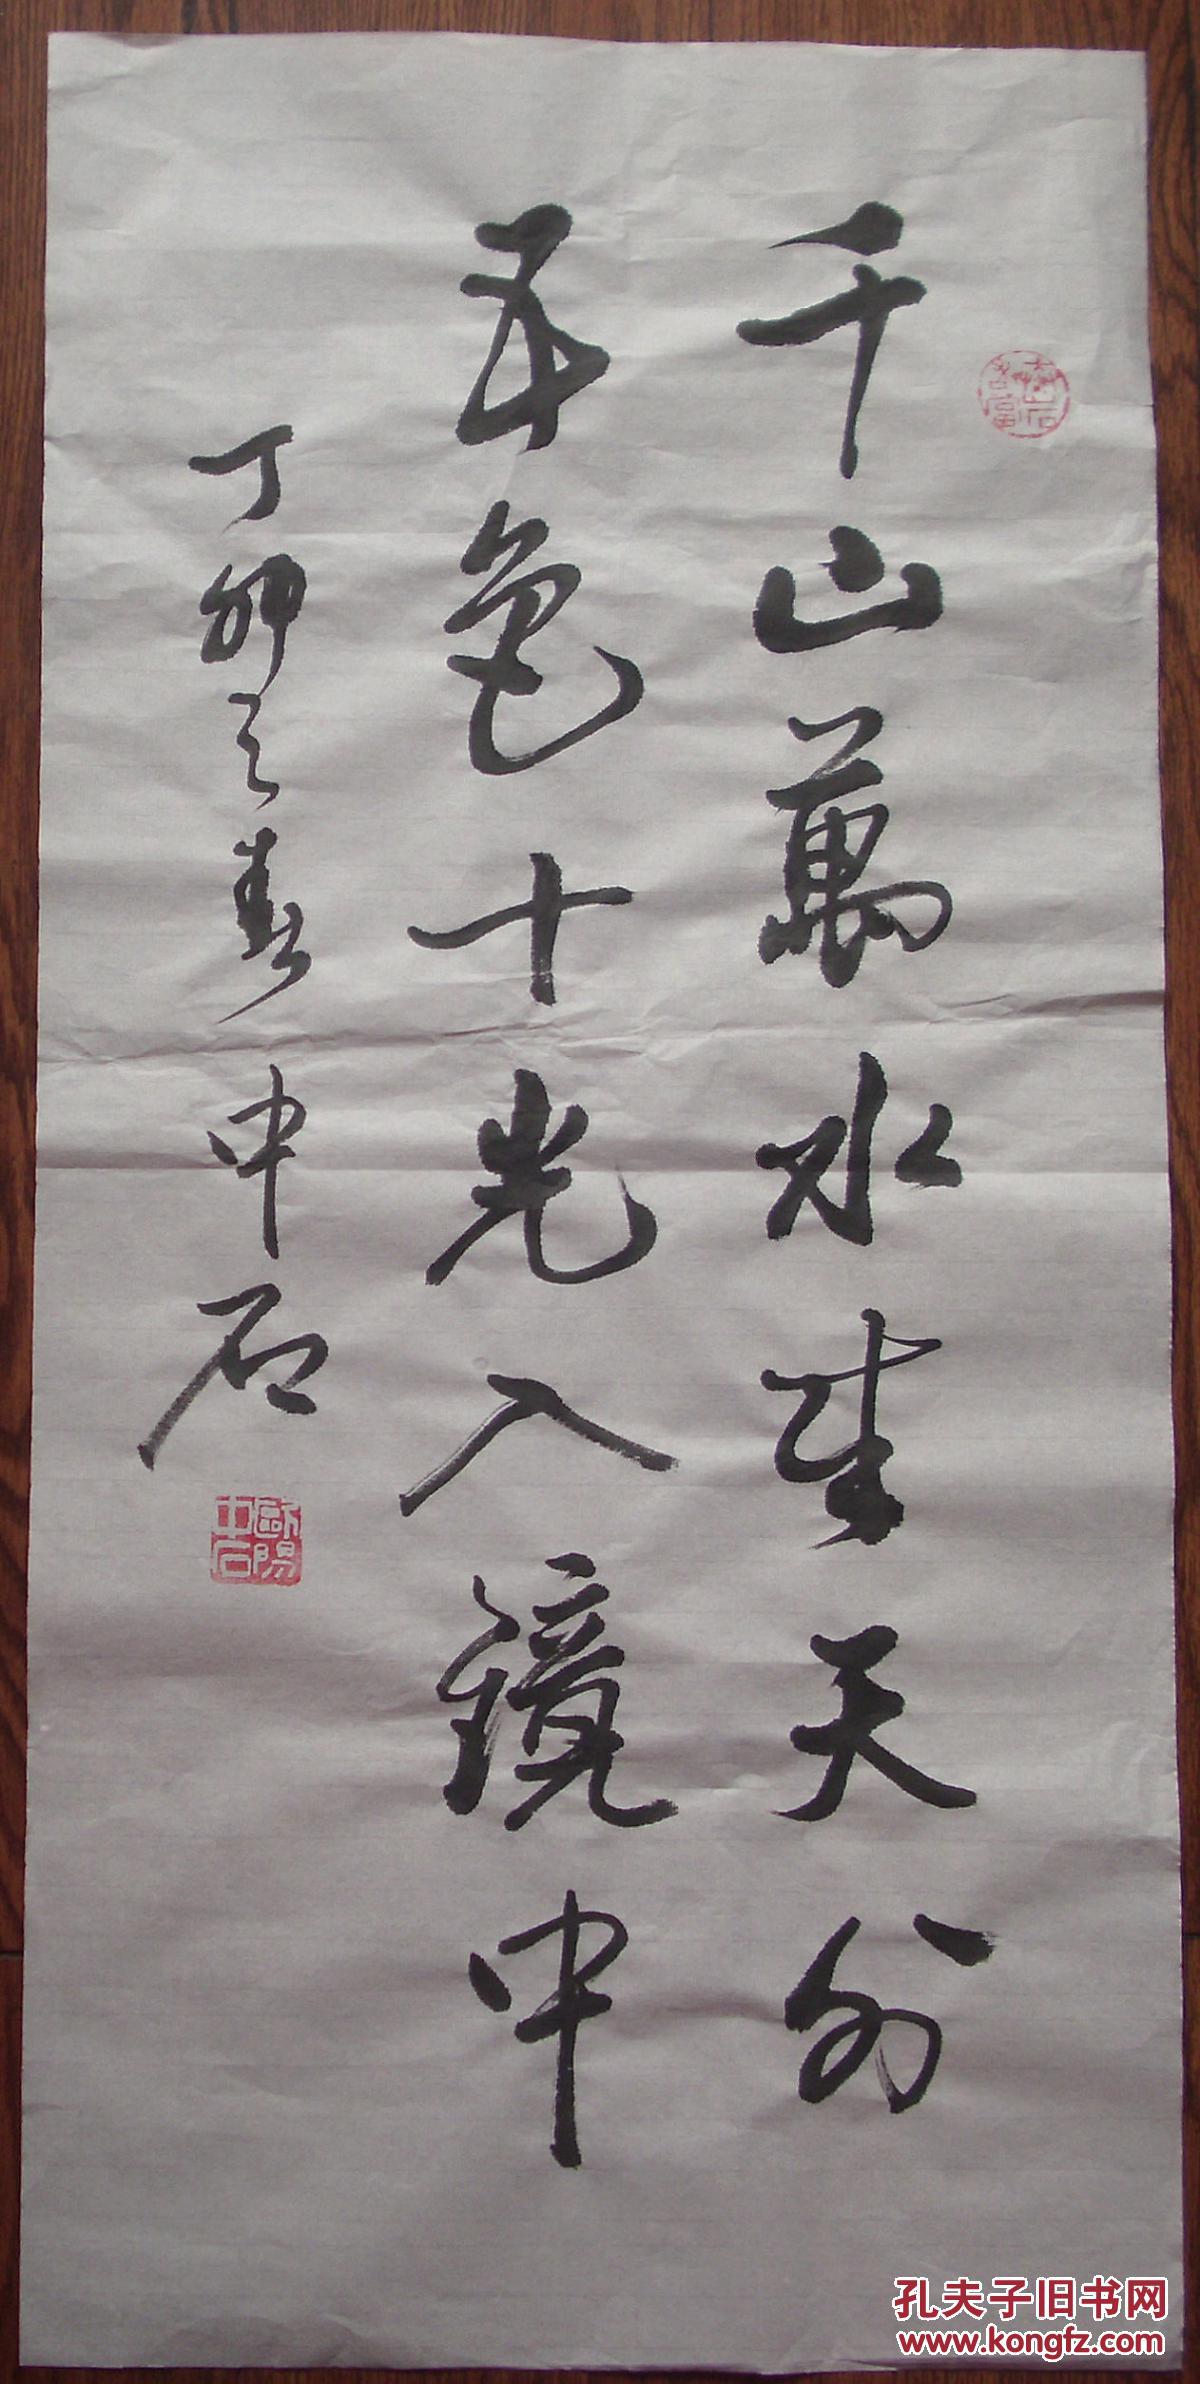 千山萬水生天外
五色十光入鏡中
丁卯之春 中石
歐陽中石
孔夫子旧书网
www.kongfz.com